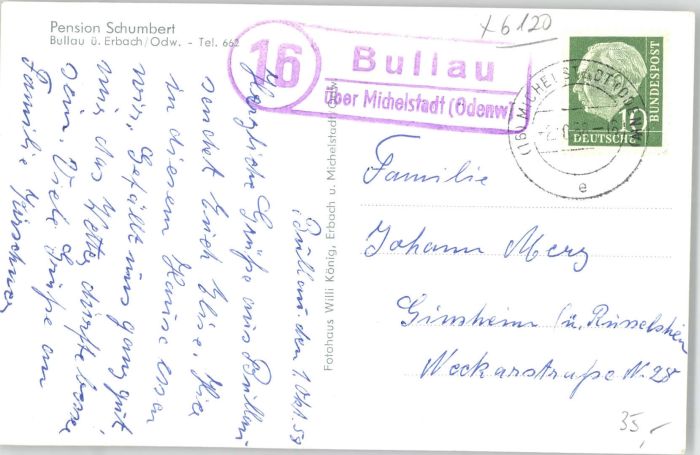 Pension Schumbert
Bullau ü. Erbach/Odw. - Tel. 662
16
Bullau
über Michelstadt (Odenw)
x 6120
DEUTSCHE
BUNDESPOST
10
(16) MICHELSTADT
e
Bullau, den 1. Okt. 58
Herzliche Grüße aus Bullau
sendet Euch Elise. Hier
in diesem Hause essen
wir. Gefällt uns ganz gut
nur das Wetter dürfte besser
sein. Viele Grüße an
Familie Kirschner
Fotohaus Willi König, Erbach u. Michelstadt/Odw.
Familie
Johann Merz
Ginsheim (ü. Rüsselsheim
Neckarstraße N. 28
35,-